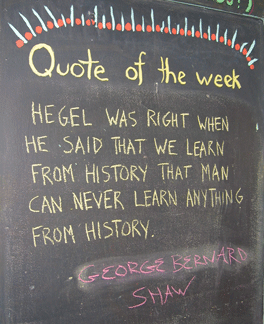 Quote of the week
HEGEL WAS RIGHT WHEN
HE SAID THAT WE LEARN
FROM HISTORY THAT MAN
CAN NEVER LEARN ANYTHING
FROM HISTORY.
GEORGE BERNARD
SHAW